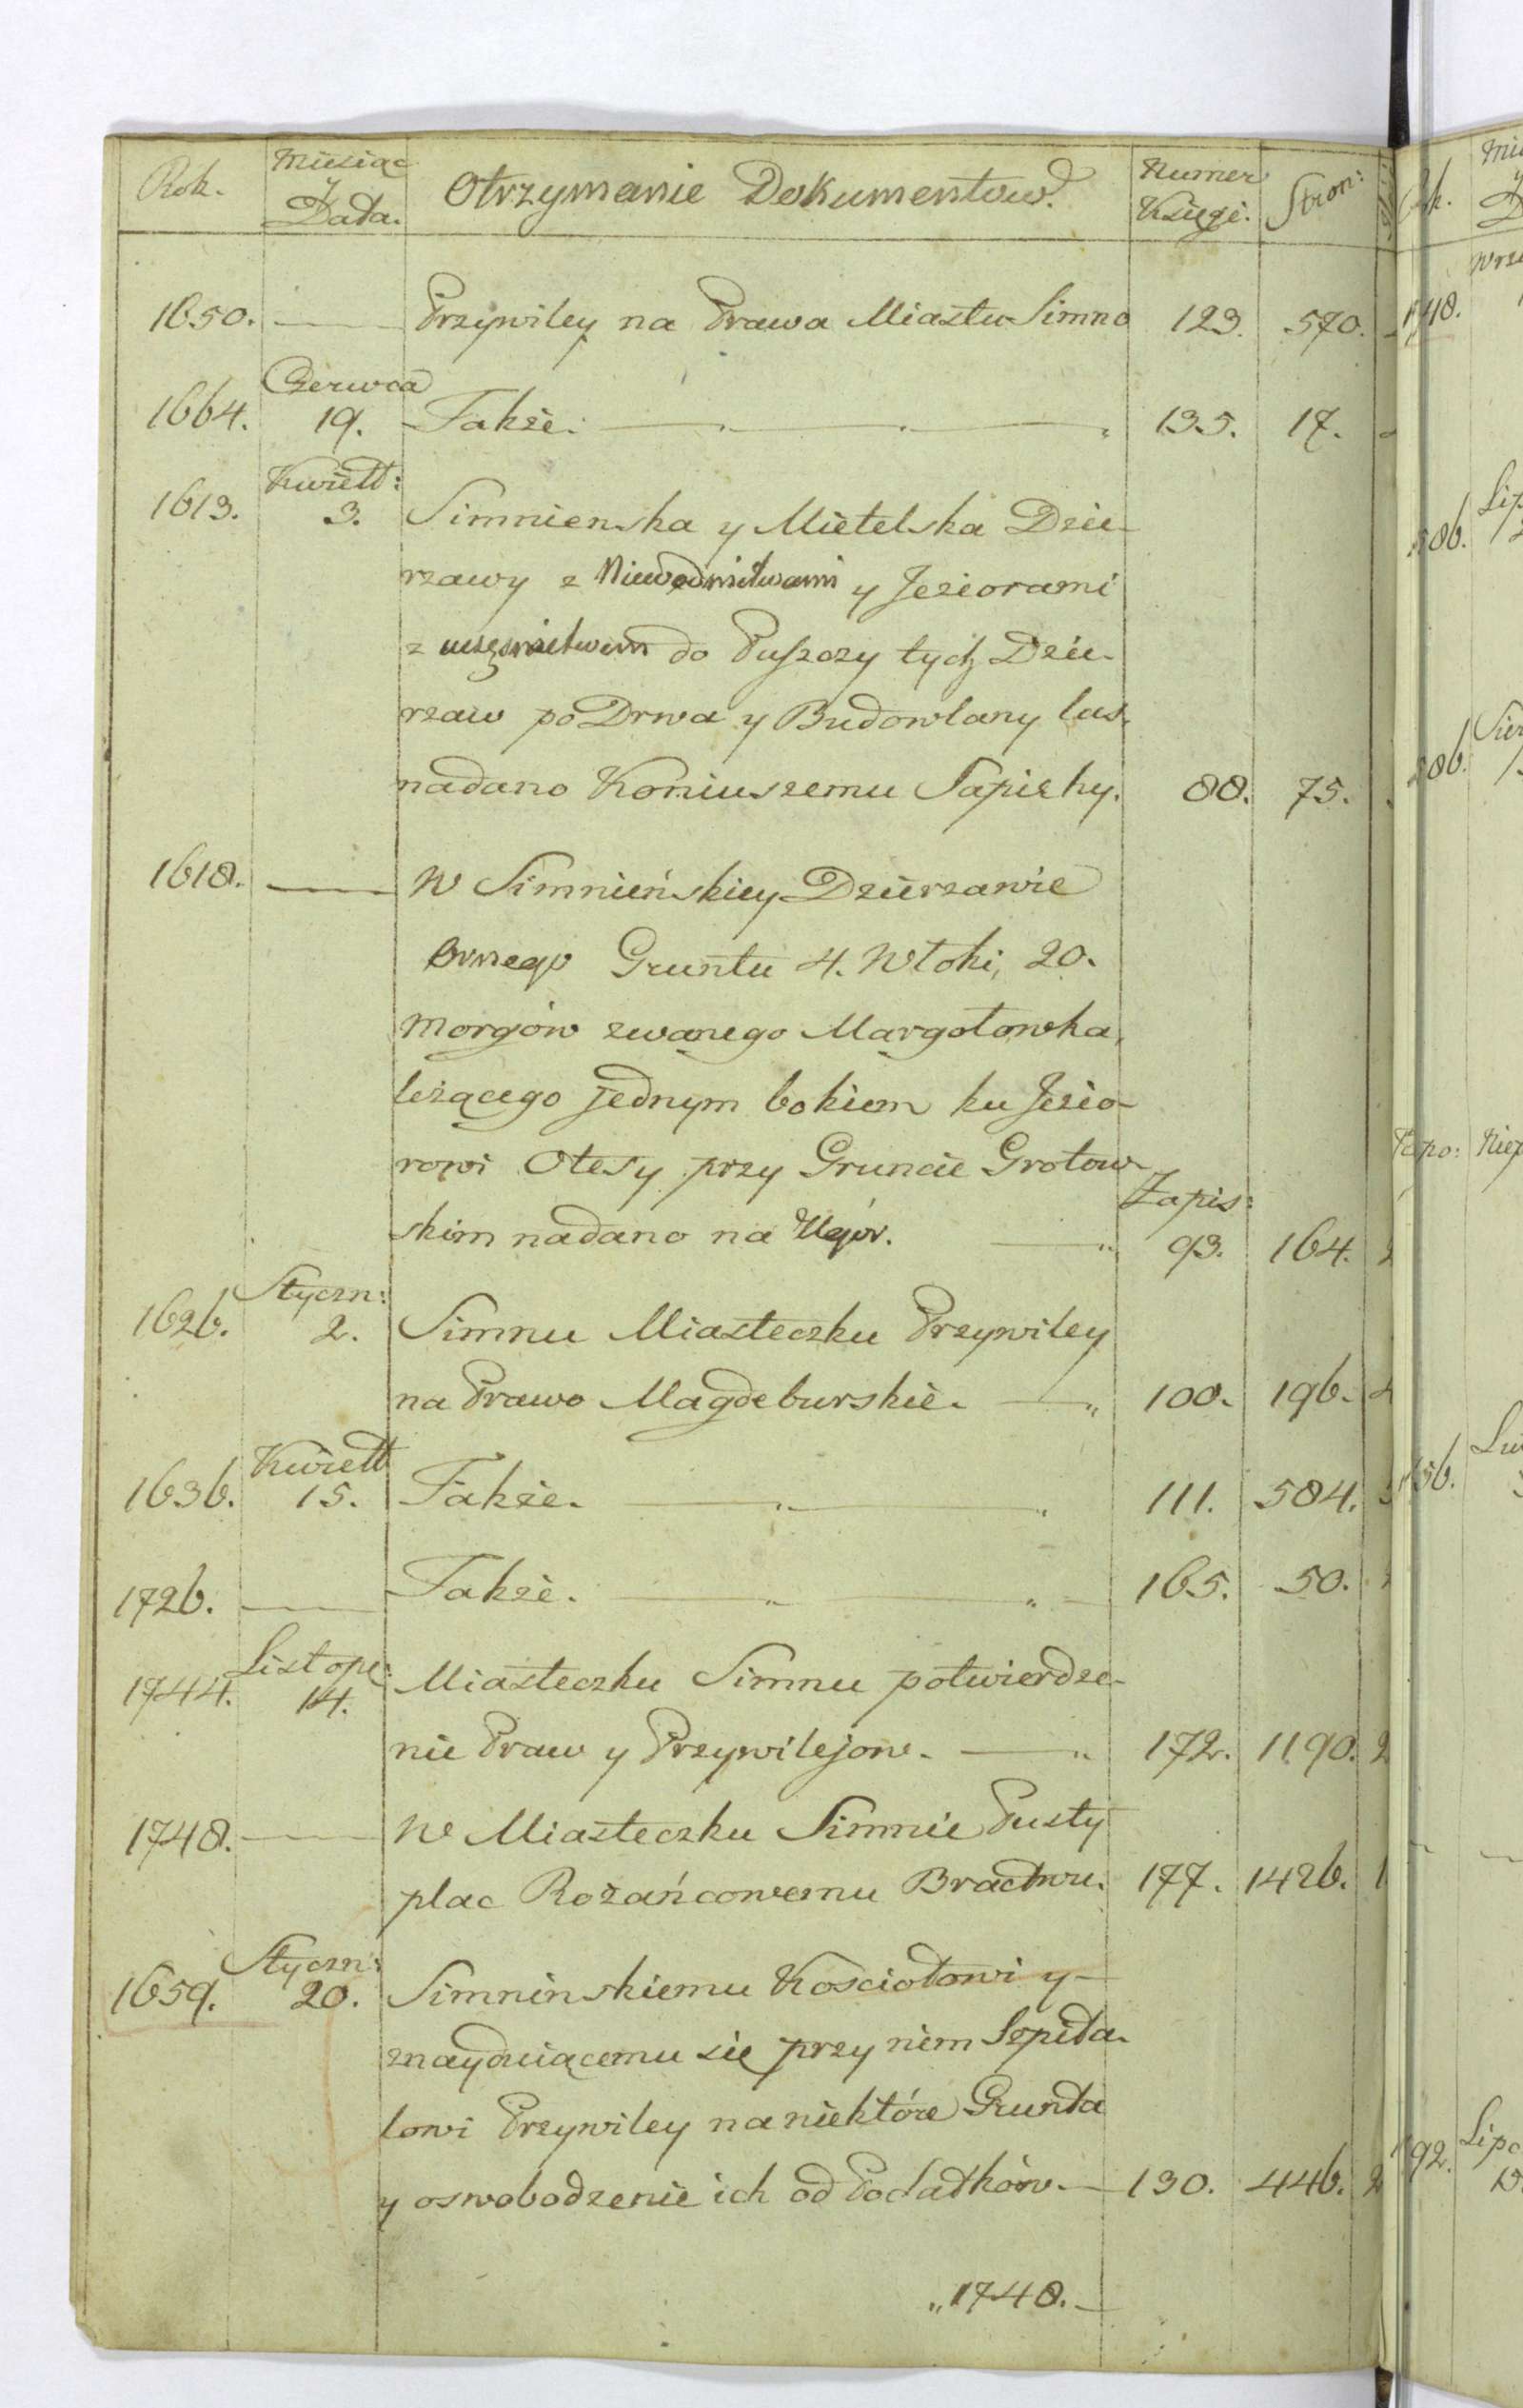 Rok. Miesiąc y Data. Otrzymanie Dokumentow. Numer Księgi. Stron:
1650. — Przywiley na Prawa Miastu Simno 123. 570.
Czerwca
1664. 19. Także. — 135. 17.
Kwiett:
1613. 3. Simnienska y Mietelska Dzie-
rzawy z Niewodnictwami y Jeziorami
z do Puszczy tych Dzie-
rzaw po Drwa y Budowlany las,
nadano Koniuszemu Sapiehy. 88. 75.
1618. — W Simnieńskiey Dzierzawie
Ornego Gruntu 4. Włoki, 20.
Morgów zwanego Margotowka,
leżącego jednym bokiem ku Jezio-
rowi Olesy przy Gruncie Grotow-
Zapis:
skim nadano na Ugór. — 93. 164.
Styczn:
1626. 2. Simnu Miasteczku Przywiley
na Prawo Magdeburskie. — 100. 196.
Kwiett
1636. 15. Także. — 111. 584.
1726. — Także. — 165. 50.
Listopa:
1744. 14. Miasteczku Simnu potwierdze-
nie Praw y Przywilejow. — 172. 1190.
1748. — W Miasteczku Simnie Pusty
plac Rożańcowemu Bractwu. 177. 1426.
Styczn:
1659. 20. Simninskiemu Kosciołowi y
znayduiącemu sie przy niem Szpita-
lowi Przywiley na niektóre Grunta
y oswobodzenie ich od Podatków. — 130. 446.
„ 1748. —